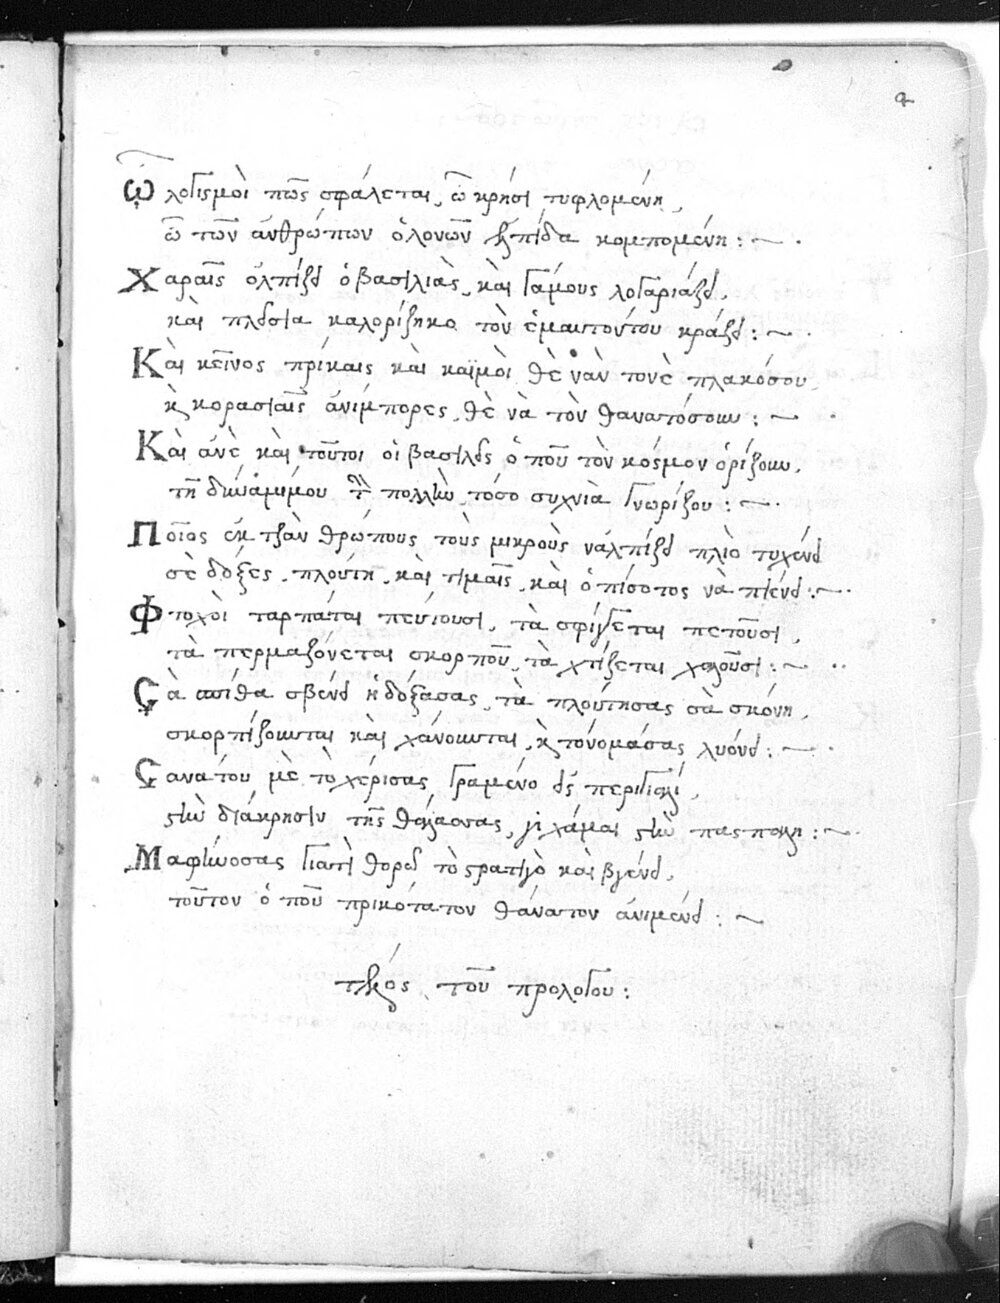 Ὦ λογισμοὶ πῶς σφάλεται, ὦ κρήσι τυφλομένη,
ὦ τῶν ἀνθρώπων ὁλονῶν ἐλπίδα κομπομένη: ~ .
Χαραῖς ὀλπίζει ὁ βασιλιὰς, κὰι γάμους λογαριάζει,
καὶ πλούσια καλορίζηκο τὸν ἐμαυτοντου κράζει: ~ .
Κὰι κεῖνος πρίκαις κὰι καϊμὸι θὲ νὰν τονὲ πλακόσου
κ κορασιαῖς ἀνίμπορες, θὲ νὰ τὸν θανατόσουν: ~ .
Κὰι ἀνὲ κὰι τοῦτοι οἱ βασιλεῖς ὁ ποῦ τὸν κόσμον ὁρίζουν,
τῆ δύναμίμου τὴ πολλὴν τόσο συχνιὰ γνωρίζου: ~ .
Ποῖος ἐκ τζὰν θρώπους τοὺς μικροὺς νάλπίζει πλιὸ τυχένει
σὲ δόξες, πλούτη, κὰι τιμαῖς, κὰι ὁ πίσοτος νὰ πιένει: ~ .
Φτοχὸι ταρπάται πεύτουσι, τὰ σφίγγεται πετοῦσι,
τὰ περμαζόνεται σκορποῦ, τὰ χτίζεται χαλοῦσι: ~ ..
Σὰ σπίθα σβένει ἡ δοξάσας, τὰ πλούτησας σὰ σκόνη,
σκορπίζουνται κὰι χάνουνται, κ τόνομάσας λυόνει: ~ .
Σανάτου μὲ τὸ χέρισας γραμένο εἰς περιγιάλι,
στὴν διάκρησιν τῆς θαλάσσας, γὶ χάμαι στὴν πασπάλη: ~ .
Μαφίνοσας γιατὶ θορεῖ τὸ στρατιγὸ κὰι βγένει,
τοῦτον ὁ ποῦ πρικότατον θάνατον ἀνιμένει: ~
τέλος τοῦ προλόγου: